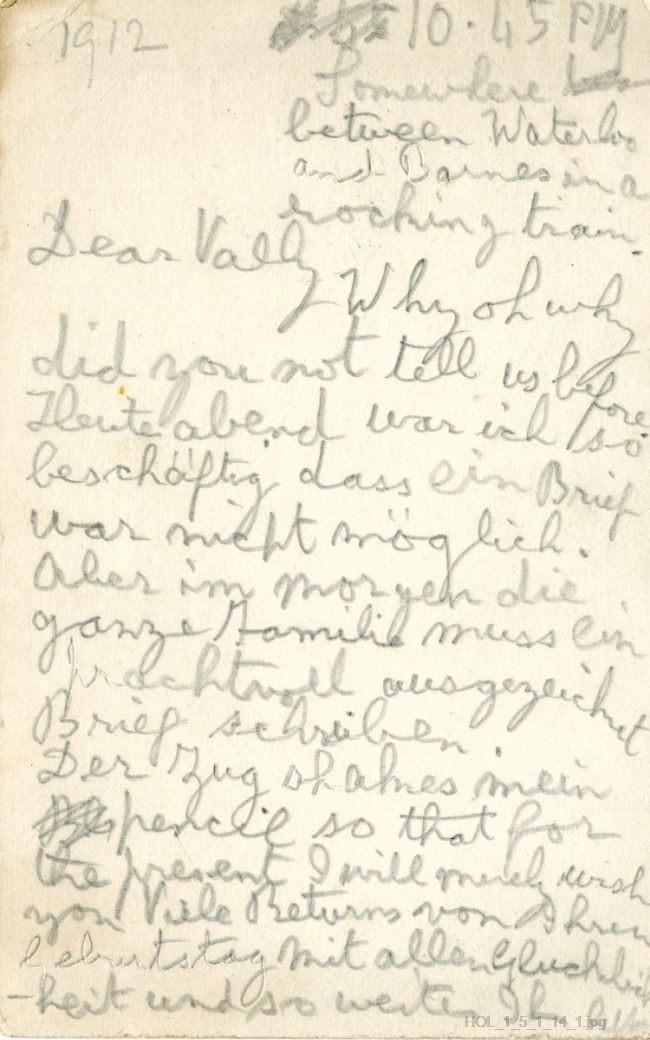 1912
10.45 PM
Somewhere
between Waterloo
and Barnes in a
rocking train.
Dear Vally
Why oh why
did you not tell us before
Heute abend war ich so
beschäftig dass ein Brief
war nicht möglich.
Aber im morgen die
ganze Familie muss ein
prachtvoll ausgezeichnet
Brief schriben.
Der Zug shakes mein
pencil so that for
the present I will merely wish
you Viele Returns von Ihren
Geburtstag mit allen Gluchlich
-heit und so weiter
HOL_1_5_1_14_1.jpg